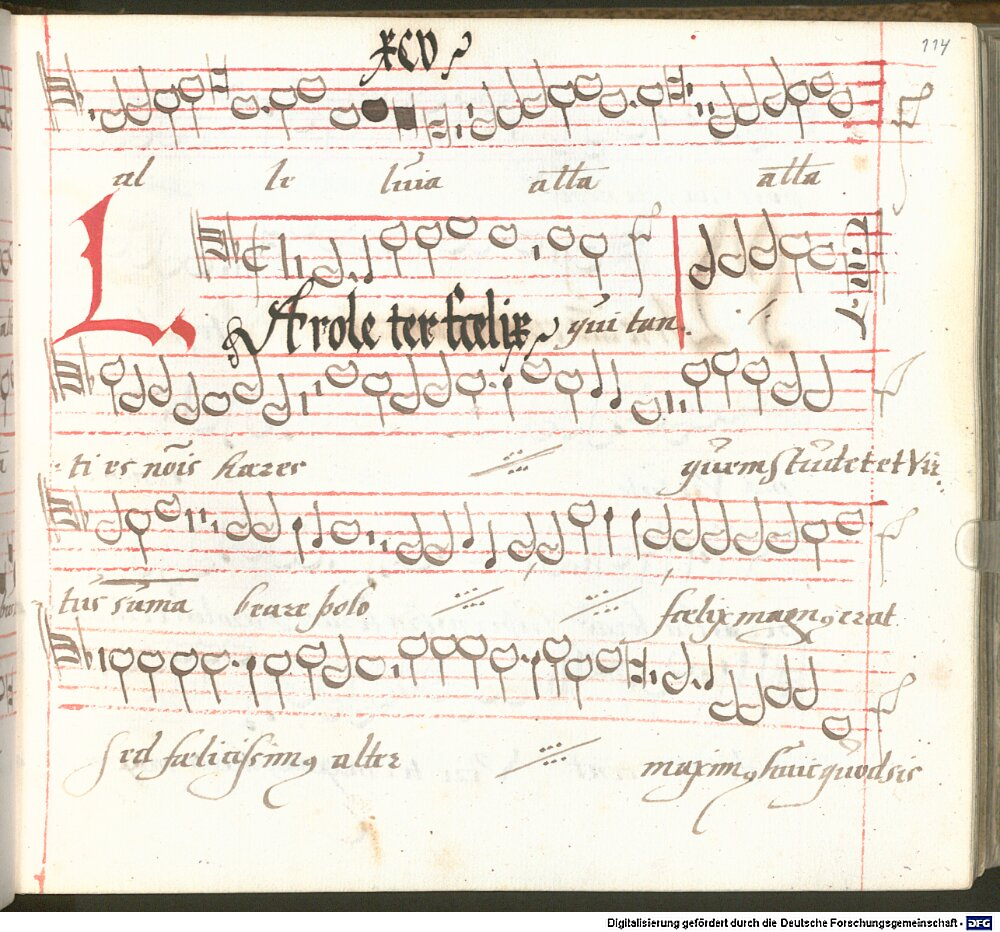 XCV
114
al le luia alla alla
L
Arole ter fœlix qui tan
ti es nōis hæres quem studet et Vir
tus sūma beare polo fœlix magnꝰ erat
sed fœlicissimꝰ alter maximꝰ huic quod sis
Digitalisierung gefördert durch die Deutsche Forschungsgemeinschaft - DFG